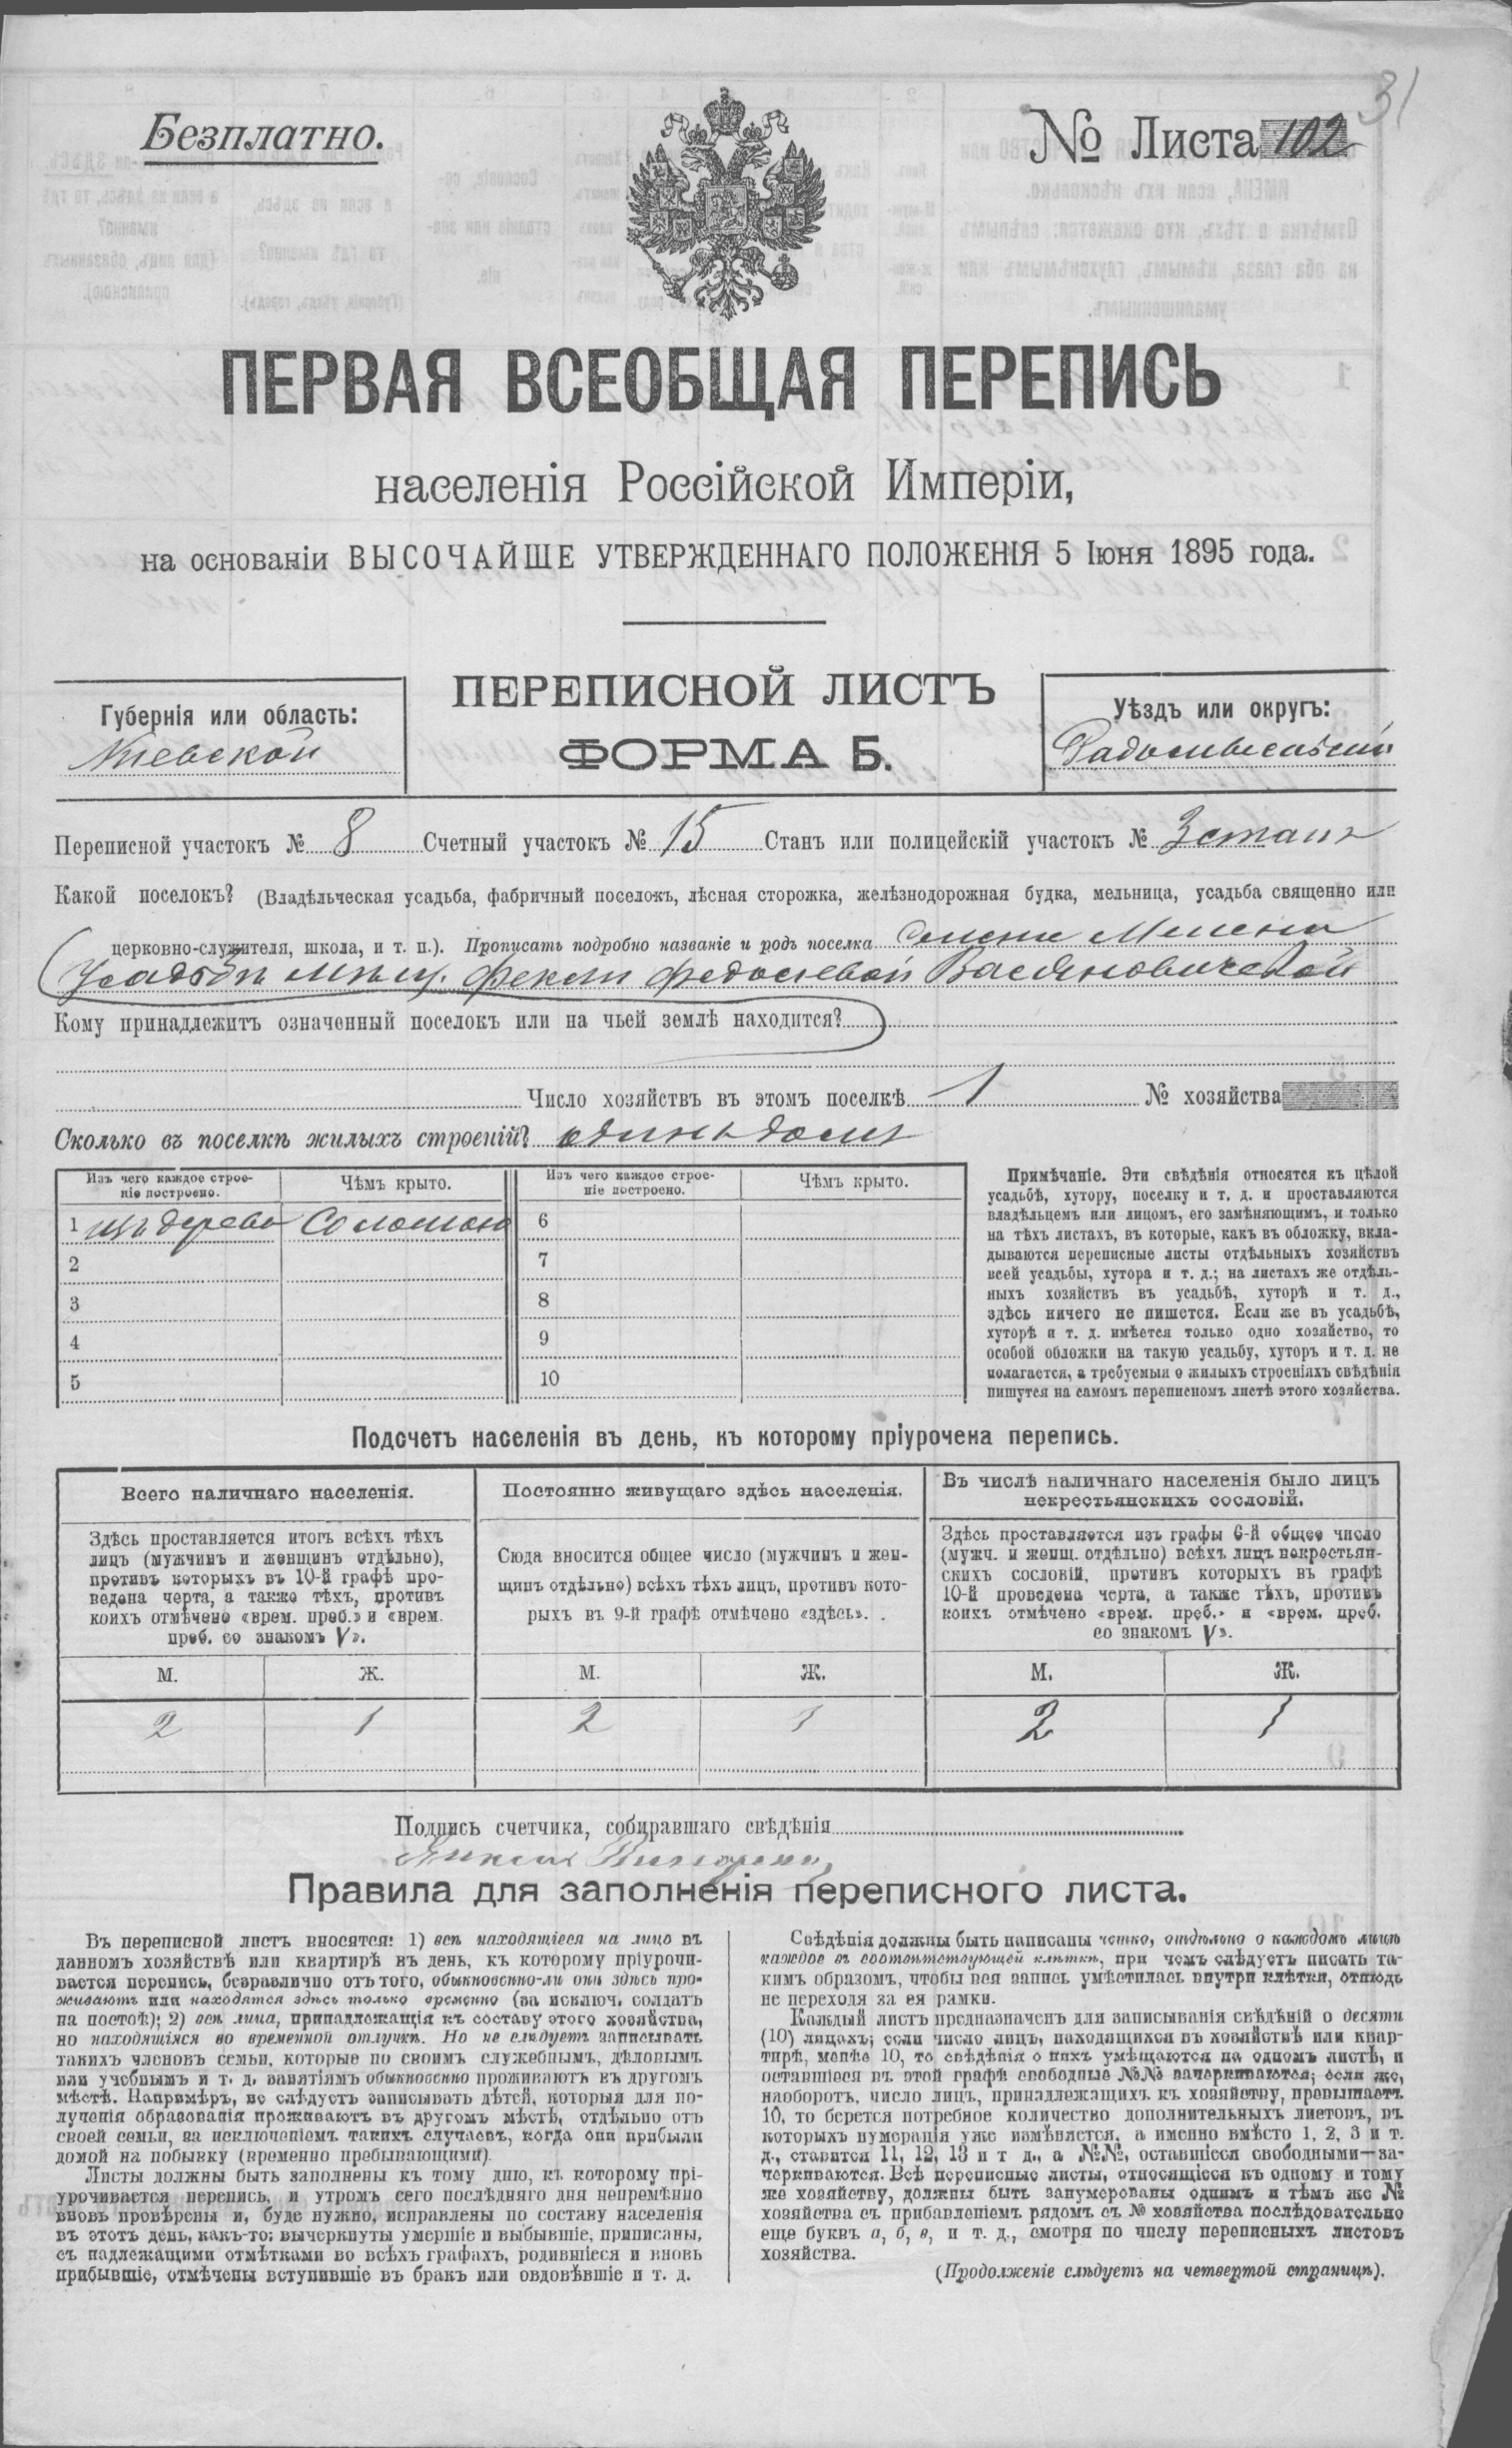 31
Безплатно.
№ Листа 102
ПЕРВАЯ ВСЕОБЩАЯ ПЕРЕПИСЬ
населенія Россійской Имперіи,
на основаніи ВЫСОЧАЙШЕ УТВЕРЖДЕННАГО ПОЛОЖЕНІЯ 5 Іюня 1895 года.
ПЕРЕПИСНОЙ ЛИСТЪ
ФОРМА Б.
Губернія или область:
Кіевской
Уѣздъ или округъ:
Радомысльскій
Переписной участокъ № 8 Счетный участокъ № 15 Станъ или полицейскій участокъ № 3 станъ
Какой поселокъ? (Владѣльческая усадьба, фабричный поселокъ, лѣсная сторожка, желѣзнодорожная будка, мельница, усадьба священно или
церковно-служителя, школа, и т. п.). Прописать подробно названіе и родъ поселка Селеніе Мелени
Усадьба мѣщ. Феклы Федосіевой Васьяновичевой
Кому принадлежитъ означенный поселокъ или на чьей землѣ находится?
Число хозяйствъ въ этомъ поселкѣ 1 № хозяйства
Сколько въ поселкѣ жилыхъ строеній? одинъ домъ
Изъ чего каждое строе-
ніе построено.
Чѣмъ крыто.
Изъ чего каждое строе-
ніе построено.
Чѣмъ крыто.
1 изъ дерева Соломою 6
2 7
3 8
4 9
5 10
Примѣчаніе. Эти свѣдѣнія относятся къ цѣлой
усадьбѣ, хутору, поселку и т. д. и проставляются
владѣльцемъ или лицомъ, его замѣняющимъ, и только
на тѣхъ листахъ, въ которые, какъ въ обложку, вкла-
дываются переписные листы отдѣльныхъ хозяйствъ
всей усадьбы, хутора и т. д.; на листахъ же отдѣль-
ныхъ хозяйствъ въ усадьбѣ, хуторѣ и т. д.,
здѣсь ничего не пишется. Если же въ усадьбѣ,
хуторѣ и т. д. имѣется только одно хозяйство, то
особой обложки на такую усадьбу, хуторъ и т. д. не
полагается, а требуемыя о жилыхъ строеніяхъ свѣдѣнія
пишутся на самомъ переписномъ листѣ этого хозяйства.
Подсчетъ населенія въ день, къ которому пріурочена перепись.
Всего наличнаго населенія.
Здѣсь проставляется итогъ всѣхъ тѣхъ
лицъ (мужчинъ и женщинъ отдѣльно),
противъ которыхъ въ 10-й графѣ про-
ведена черта, а также тѣхъ, противъ
коихъ отмѣчено «врем. преб.» и «врем.
преб. со знакомъ V».
М. Ж.
2 1
Постоянно живущаго здѣсь населенія.
Сюда вносится общее число (мужчинъ и жен-
щинъ отдѣльно) всѣхъ тѣхъ лицъ, противъ кото-
рыхъ въ 9-й графѣ отмѣчено «здѣсь».
М. Ж.
2 1
Въ числѣ наличнаго населенія было лицъ
некрестьянскихъ сословій.
Здѣсь проставляется изъ графы 6-й общее число
(мужч. и женщ. отдѣльно) всѣхъ лицъ некрестьян-
скихъ сословій, противъ которыхъ въ графѣ
10-й проведена черта, а также тѣхъ, противъ
коихъ отмѣчено «врем. преб.» и «врем. преб.
со знакомъ V».
М. Ж.
2 1
Подпись счетчика, собиравшаго свѣдѣнія
Правила для заполненія переписного листа.
Въ переписной листъ вносятся: 1) всѣ находящіеся на лицо въ
данномъ хозяйствѣ или квартирѣ въ день, къ которому пріурочи-
вается перепись, безразлично отъ того, обыкновенно-ли они здѣсь про-
живаютъ или находятся здѣсь только временно (за исключ. солдатъ
на постоѣ); 2) всѣ лица, принадлежащія къ составу этого хозяйства,
но находящіяся во временной отлучкѣ. Но не слѣдуетъ записывать
такихъ членовъ семьи, которые по своимъ служебнымъ, дѣловымъ
или учебнымъ и т. д. занятіямъ обыкновенно проживаютъ въ другомъ
мѣстѣ. Напримѣръ, не слѣдуетъ записывать дѣтей, которыя для по-
лученія образованія проживаютъ въ другомъ мѣстѣ, отдѣльно отъ
своей семьи, за исключеніемъ такихъ случаевъ, когда они прибыли
домой на побывку (временно пребывающими).
Листы должны быть заполнены къ тому дню, къ которому прі-
урочивается перепись, и утромъ сего послѣдняго дня непремѣнно
вновь провѣрены и, буде нужно, исправлены по составу населенія
въ этотъ день, какъ-то: вычеркнуты умершіе и выбывшіе, приписаны,
съ надлежащими отмѣтками во всѣхъ графахъ, родившіеся и вновь
прибывшіе, отмѣчены вступившіе въ бракъ или овдовѣвшіе и т. д.
Свѣдѣнія должны быть написаны четко, отдѣльно о каждомъ лицѣ
каждое въ соотвѣтствующей клѣткѣ, при чемъ слѣдуетъ писать та-
кимъ образомъ, чтобы вся запись умѣстилась внутри клѣтки, отнюдь
не переходя за ея рамки.
Каждый листъ предназначенъ для записыванія свѣдѣній о десяти
(10) лицахъ; если число лицъ, находящихся въ хозяйствѣ или квар-
тирѣ, менѣе 10, то свѣдѣнія о нихъ умѣщаются на одномъ листѣ, и
оставшіеся въ этой графѣ свободные №№ зачеркиваются; если же,
наоборотъ, число лицъ, принадлежащихъ къ хозяйству, превышаетъ
10, то берется потребное количество дополнительныхъ листовъ, въ
которыхъ нумерація уже измѣняется, а именно вмѣсто 1, 2, 3 и т.
д., ставится 11, 12, 13 и т д., а №№, оставшіеся свободными—за-
черкиваются. Всѣ переписные листы, относящіеся къ одному и тому
же хозяйству, должны быть занумерованы однимъ и тѣмъ же №
хозяйства съ прибавленіемъ рядомъ съ № хозяйства послѣдовательно
еще буквъ а, б, в, и т. д., смотря по числу переписныхъ листовъ
хозяйства.
(Продолженіе слѣдуетъ на четвертой страницѣ).